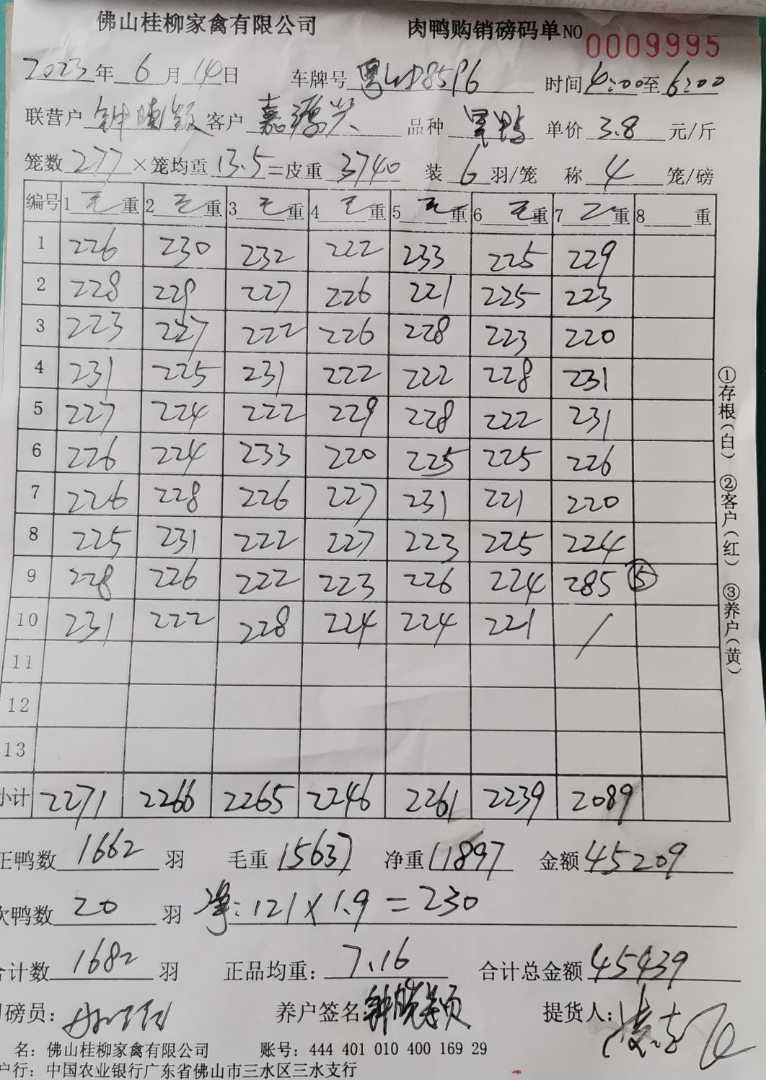 佛山桂柳家禽有限公司 肉鸭购销磅码单 NO 0009995
2023年6月14日 车牌号 粤 D8596 时间 4:00至6:00
联营户 钟 颖 客户 嘉源兴 品种 单价 3.8 元/斤
笼数 277 ×笼均重 13.5 =皮重 3740 装 6 羽/笼 称 4 笼/磅
编号 1 毛 重 2 毛 重 3 毛 重 4 毛 重 5 毛 重 6 毛 重 7 毛 重 8 重
1 226 230 232 222 233 225 229
2 228 229 227 226 221 225 223
3 223 227 222 226 228 223 220
4 231 225 231 222 222 228 231
5 227 224 222 229 228 222 231
6 226 224 233 220 225 225 226
7 226 228 226 227 231 221 220
8 225 231 222 227 223 225 224
9 228 226 222 223 226 224 285 ⑤
10 231 222 228 224 224 221 /
11
12
13
小计 2271 2266 2265 2246 2261 2239 2089
正鸭数 1662 羽 毛重 15637 净重 11897 金额 45209
次鸭数 20 羽 净: 121 × 1.9 = 230
合计数 1682 羽 正品均重: 7.16 合计总金额 45439
司磅员: 养户签名: 钟晓颖 提货人:
名: 佛山桂柳家禽有限公司 账号: 444 401 010 400 169 29
户行: 中国农业银行广东省佛山市三水区三水支行
①存根(白) ②客户(红) ③养户(黄)